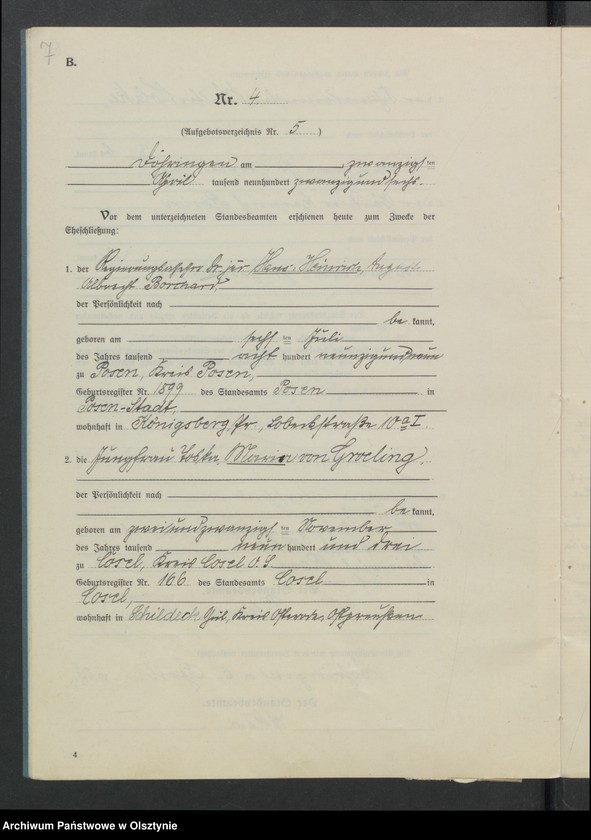 7
B.
Nr. 4
(Aufgebotsverzeichnis Nr. 5)
Döhringen am zwanzigsten
April tausend neunhundert zwanzigundsechs.
Vor dem unterzeichneten Standesbeamten erschienen heute zum Zwecke der
Eheschließung:
1. der Regierungsassessor Dr. jur. Hans-Heinrich August
Albrecht Borchard
der Persönlichkeit nach
be kannt,
geboren am sechsten Juli
des Jahres tausend acht hundert neunzigundneun
zu Posen, Kreis Posen,
Geburtsregister Nr. 1899 des Standesamts Posen in
Posen-Stadt,
wohnhaft in Königsberg Pr., Lobeckstraße 10a I
2. die Jungfrau Toska Maria von Groeling,
der Persönlichkeit nach
be kannt,
geboren am zweiundzwanzigsten November
des Jahres tausend neun hundert und drei
zu Cosel, Kreis Cosel O.S.
Geburtsregister Nr. 166 des Standesamts Cosel in
Cosel,
wohnhaft in Schildeck Gut, Kreis Osterode, Ostpreußen
4
Archiwum Państwowe w Olsztynie